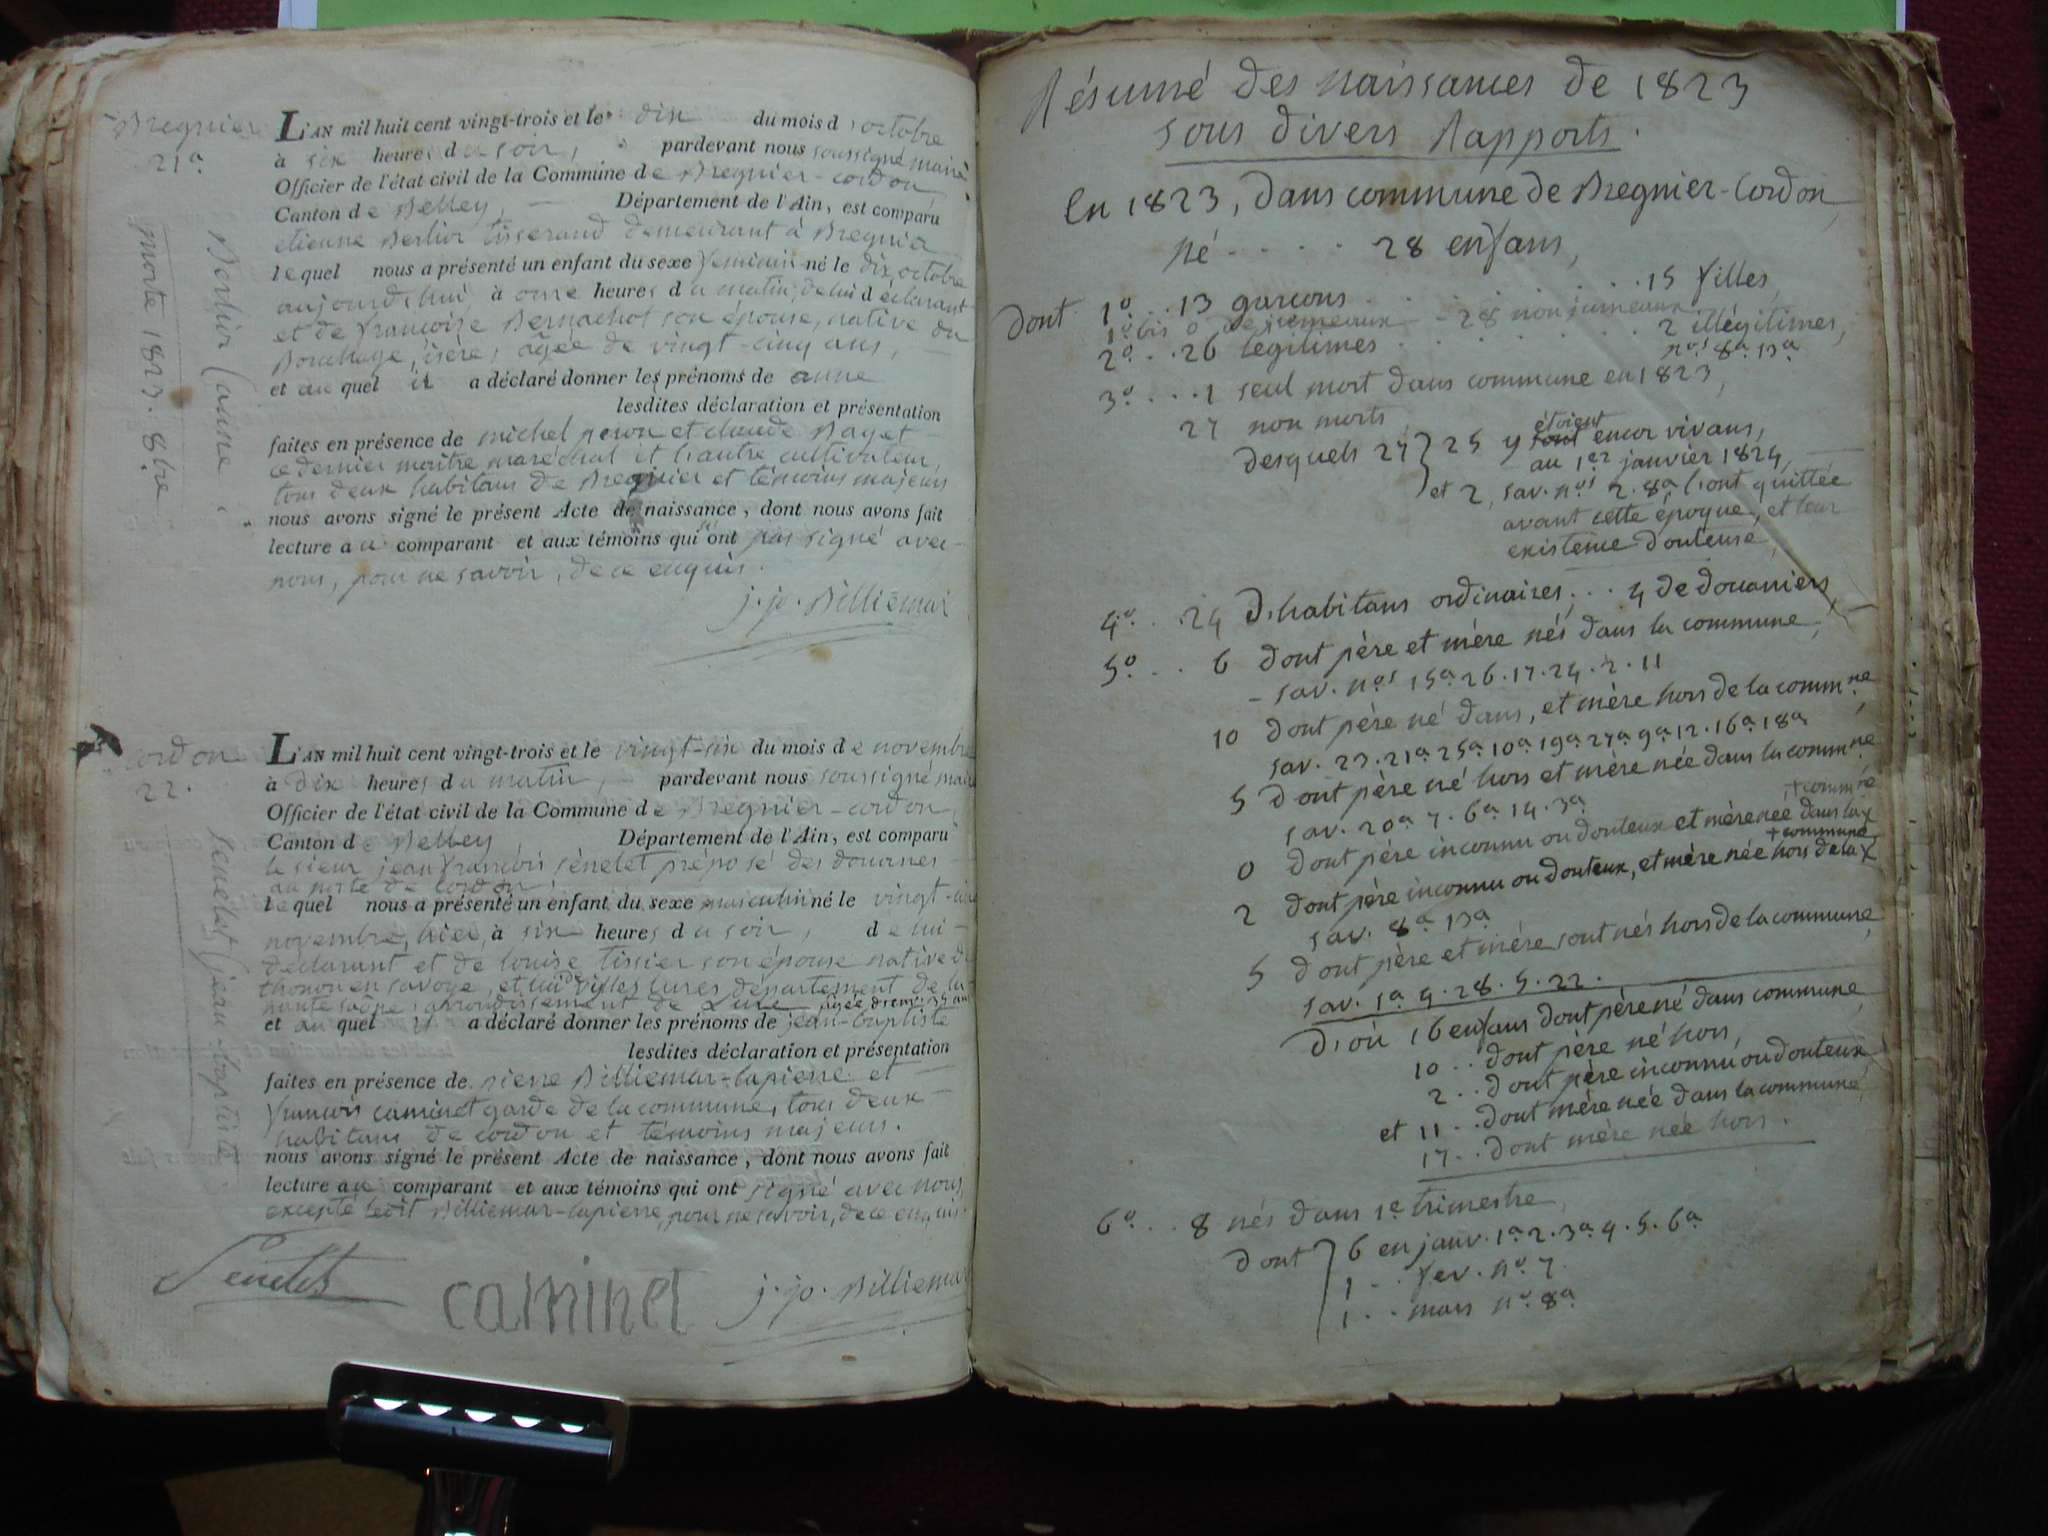 Bregnier
21a
Berlior (anne
morte 1823. 8bre
L'AN mil huit cent vingt-trois et le dix du mois d'octobre
à six heures du soir, pardevant nous soussigné maire
Officier de l'état civil de la Commune de Bregnier-cordon
Canton de Belley, Département de l'Ain, est comparu
etienne Berlior tisserand demeurant à Bregnier
lequel nous a présenté un enfant du sexe feminin né le dix octobre
aujourd'hui à onze heures du matin, de lui déclarant
et de françoise Bernachot son épouse, native du
Bouchage, isère, agée de vingt-cinq ans,
et auquel il a déclaré donner les prénoms de anne
lesdites déclaration et présentation
faites en présence de michel peron et claude Paget
ce dernier maître maréchal et l'autre cultivateur,
tous deux habitans de Bregnier et témoins majeurs
nous avons signé le présent Acte de naissance, dont nous avons fait
lecture au comparant et aux témoins qui n'ont pas signé avec
nous, pour ne savoir, de ce enquis.
j. jo. Billiemaz
cordon
22.
senelet (jean-baptiste
L'AN mil huit cent vingt-trois et le vingt-six du mois de novembre
à dix heures du matin, pardevant nous soussigné maire
Officier de l'état civil de la Commune de Bregnier-cordon,
Canton de Belley Département de l'Ain, est comparu
le sieur jean françois sénelet préposé des douanes
au poste de cordon,
lequel nous a présenté un enfant du sexe masculin né le vingt-cinq
novembre, hier, à six heures du soir, de lui
déclarant et de louise tissier son épouse native de
thonon en savoye, et lui de villes lures département de la
haute saône, arrondissement de Lure, agée d'env. 35 ans
et auquel il a déclaré donner les prénoms de jean-baptiste
lesdites déclaration et présentation
faites en présence de pierre Billiemaz-lapierre et
françois caminet garde de la commune, tous deux
habitans de cordon et témoins majeurs.
nous avons signé le présent Acte de naissance, dont nous avons fait
lecture au comparant et aux témoins qui ont signé avec nous,
excepté ledit Billiemaz-lapierre, pour ne savoir, de ce enquis.
Senelet
caminet
j. jo. Billiemaz
Résumé des naissances de 1823
sous divers Rapports.
En 1823, dans commune de Bregnier-Cordon,
né . . . . . 28 enfans,
dont 1º. . . 13 garçons . . . . . . . 15 filles,
1º bis 0 de jumeaux - 28 non jumeaux
2º. . . 26 légitimes . . . . . . . 2 illégitimes,
nos 8a. 13a
3º. . . 1 seul mort dans commune en 1823,
27 non morts
desquels 27 } 25 y sont étoient encor vivans,
au 1er janvier 1824,
et 2, sav. nos 2. 8a l'ont quittée
avant cette époque, et leur
existence douteuse,
4º. . . 24 d'habitans ordinaires, . . . 4 de douaniers,
5º. . . 6 dont père et mère nés dans la commune,
- sav. nos 15a 26. 17. 24. 2. 11
10 dont père né dans, et mère hors de la commne,
sav. 23. 21a 25a 10a 19a 27a 9a 12. 16a 18a
5 dont père né hors et mère née dans la commne
sav. 20a 7. 6a 14. 3a
0 dont père inconnu ou douteux et mère née dans la + commne
2 dont père inconnu ou douteux, et mère née hors de la + commune
sav. 8a 13a
5 dont père et mère sont nés hors de la commune,
sav. 1a 4. 28. 5. 22.
D'où 16 enfans dont père né dans commune,
10 . . dont père né hors,
2 . . dont père inconnu ou douteux
et 11 . . dont mère née dans la commune,
17 . . dont mère née hors.
6º. . . 8 nés dans 1e trimestre,
dont } 6 en janv. 1a. 2. 3a 4. 5. 6a
1 . . fev. nº 7.
1 . . mars nº 8a